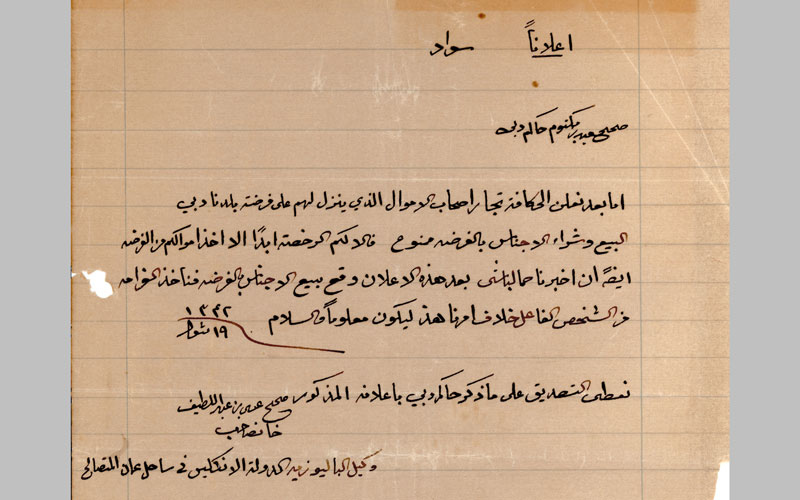 اعلاناً سواد
صحيح سعيد بن مكتوم حاكم دبي
اما بعد نعلن الى كافة تجار اصحاب الاموال الذي ينزل لهم على فرضة بلدنا دبي
البيع وشراء الاجناس بالفرضه ممنوع فالالكم الرخصته ابدًا الا اخذ اموالكم من الفرضه
ايضاً ان اخبرنا بعد هذه الاعلان وقع ببيع الاجناس بالفرضه فناخذ الغرامه
من الشخص الفاعل خلاف امرنا هذا ليكون معلوماً والسلام
١٩ شوال ١٣٤٢
نعطي التصديق على ما ذكر حاكم دبي باعلانه المذكور صحيح عيسى بن عبد اللطيف
خانصاحب
وكيل الباليوزيه الدولة الانكليس في ساحل عمان المتصالح